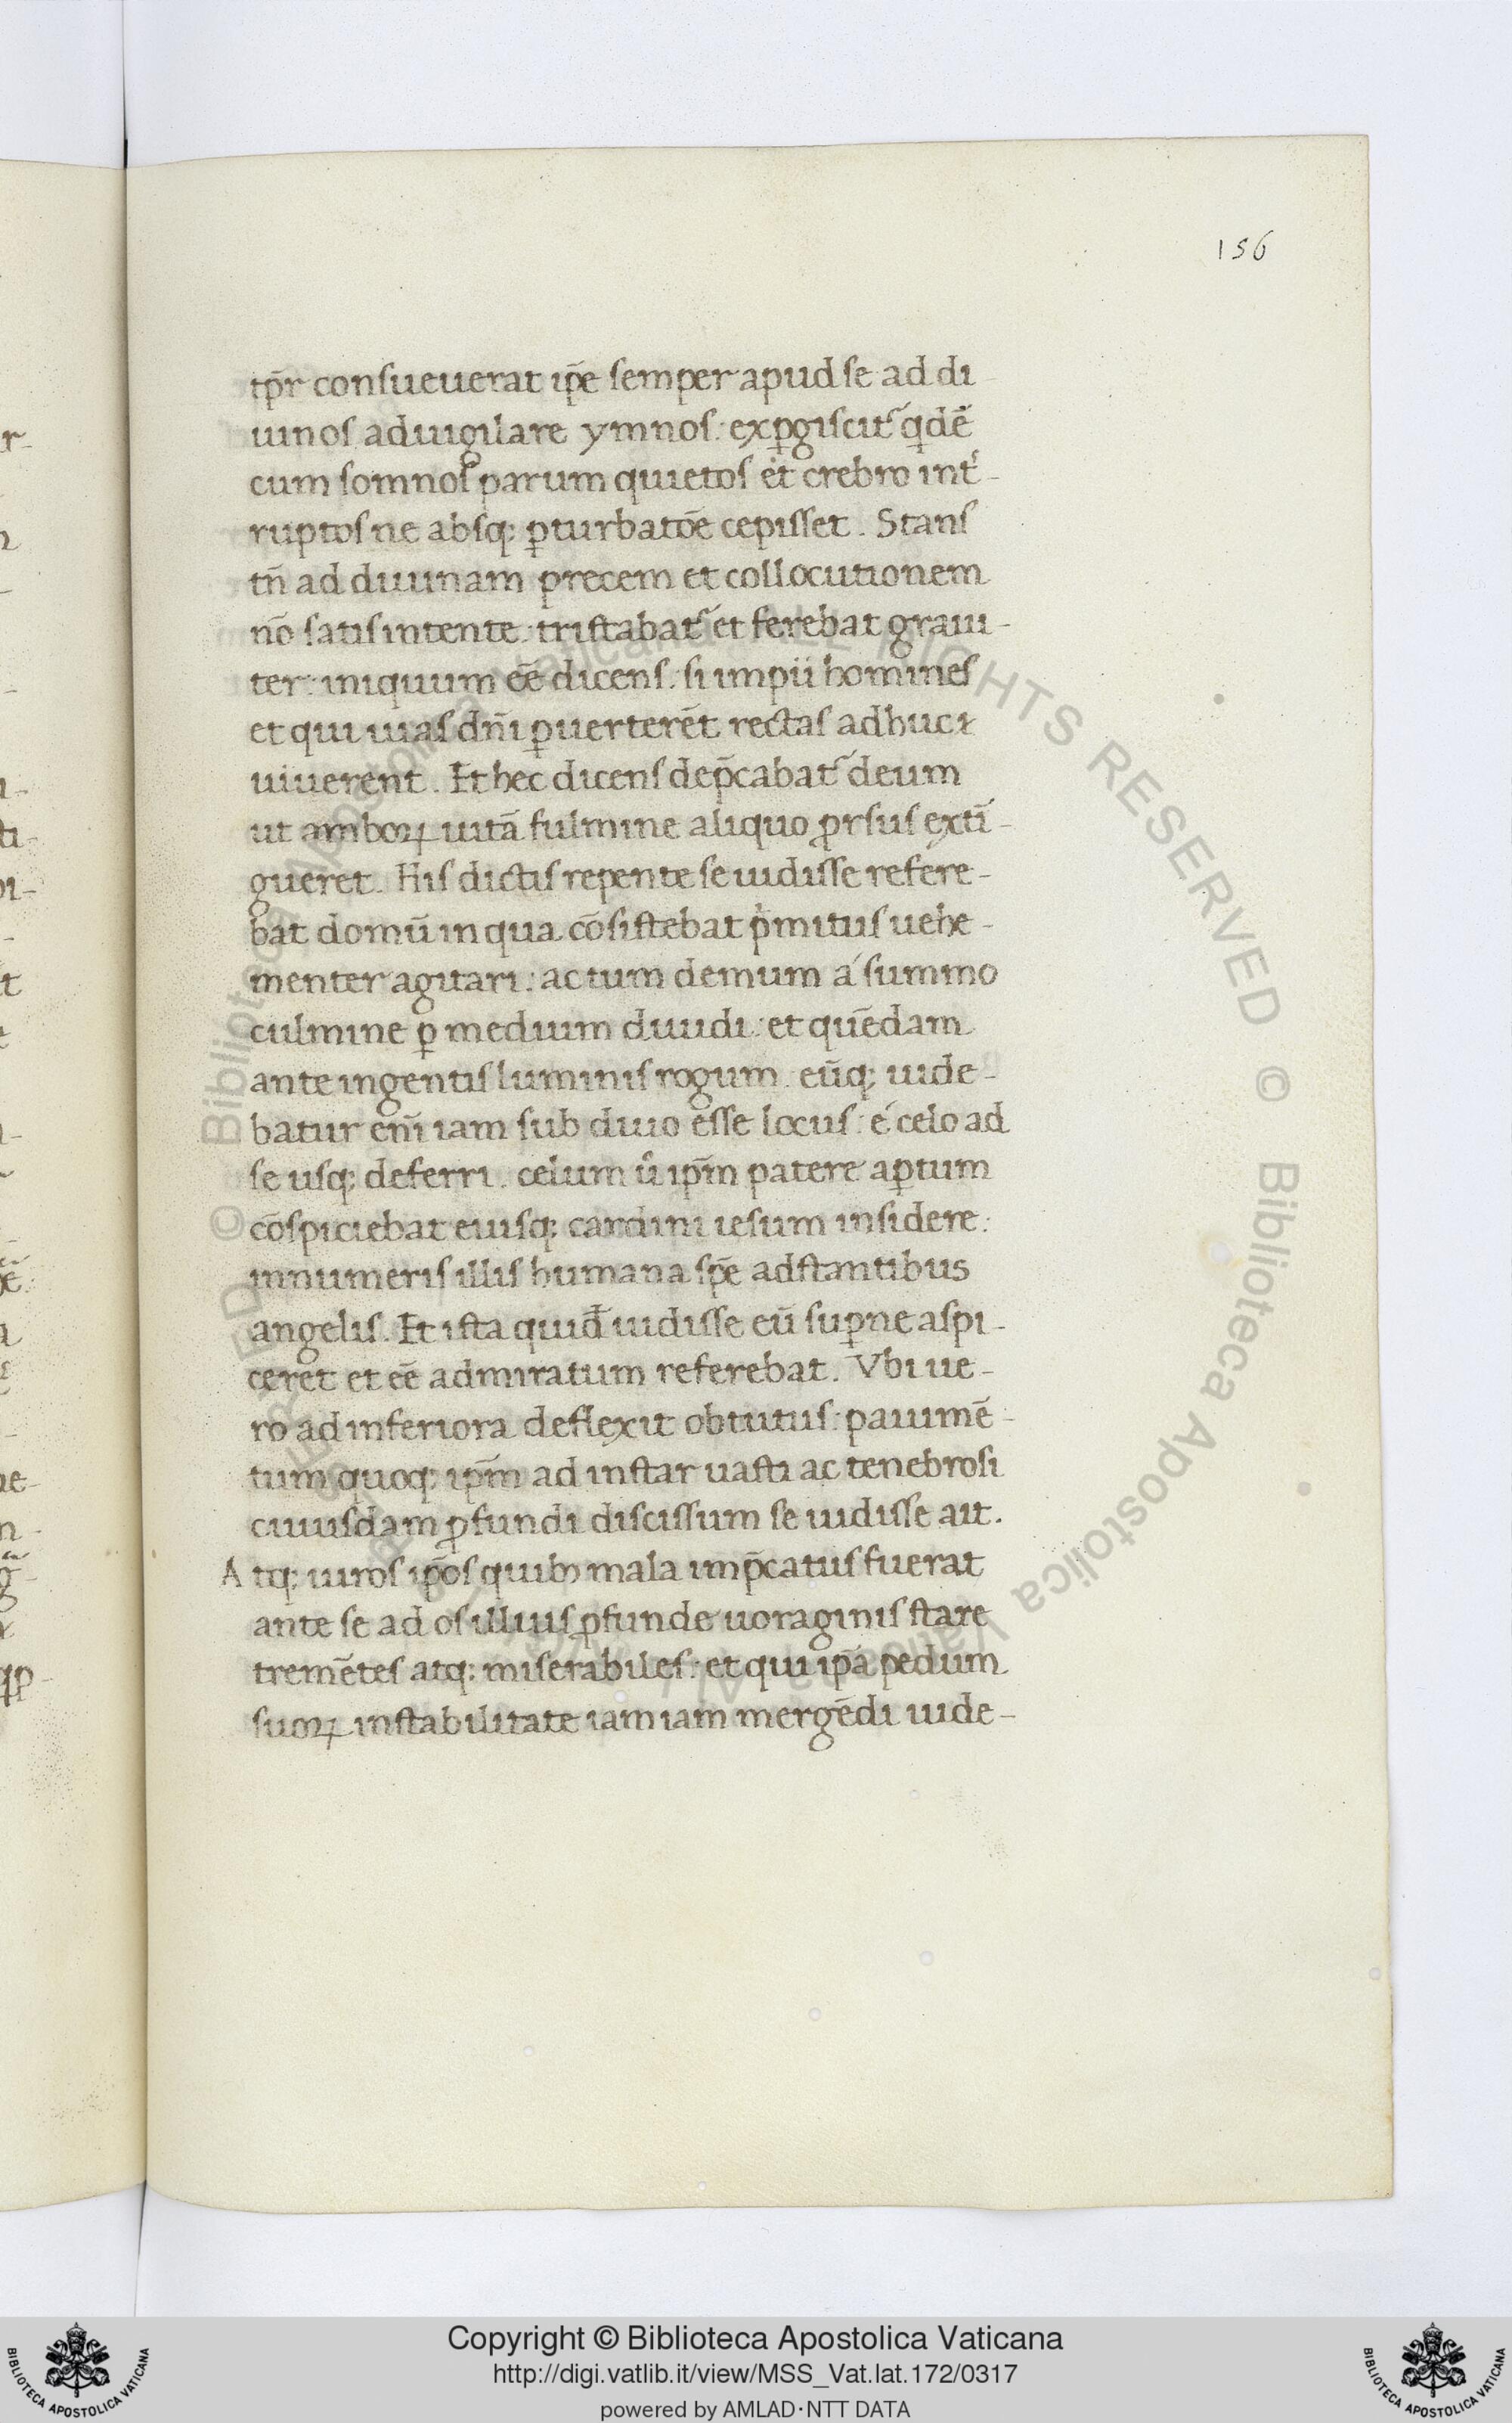 156
tp̄r consueuerat ip̄e semper apud se ad di
uinos aduigilare ymnos: exꝑgiscit᷑ qdē
cum somnos parum quietos et crebro int͛-
ruptos ne absq; ꝑturbatōe cepisset. Stans
tn̄ ad diuinam precem et collocutionem
nō satis intente: tristabat᷑ et ferebat graui-
ter: iniquum eē dicens: si impii homines
et qui uias dn̄i ꝑuerterēt rectas adhuc
uiuerent. Et hec dicens dep̄cabat᷑ deum
ut amboꝝ uitā fulmine aliquo ꝓrsus extī-
gueret. His dictis repente se uidisse refere-
bat domū in qua cōsistebat pͥmitus uehe-
menter agitari: ac tum demum a summo
culmine ꝑ medium diuidi: et quēdam
ante ingentis luminis rogum. eūq; uide-
batur eni᷑ iam sub diuo esse locus: e celo ad
se usq; deferri. celum u͛ ip̄m patere aꝑtum
cōspiciebat eiusq; cardini iesum insidere:
innumeris illis humana spē adstantibus
angelis. Et ista quid̄ uidisse eū suꝑne aspi-
ceret et eē admiratum referebat. Vbi ue-
ro ad inferiora deflexit obtutus: pauimē-
tum quoq; ip̄m ad instar uasti ac tenebrosi
cuiusdam ꝓfundi discissum se uidisse ait.
Atq; uiros ip̄os quibꝫ mala imp̄catus fuerat
ante se ad os illius ꝓfunde uoraginis stare
tremētes atq; miserabiles: et qui ip̄a pedum
suoꝝ instabilitate iam iam mergēdi uide-
Copyright © Biblioteca Apostolica Vaticana
http://digi.vatlib.it/view/MSS_Vat.lat.172/0317
powered by AMLAD·NTT DATA
BIBLIOTECA APOSTOLICA VATICANA
BIBLIOTECA APOSTOLICA VATICANA